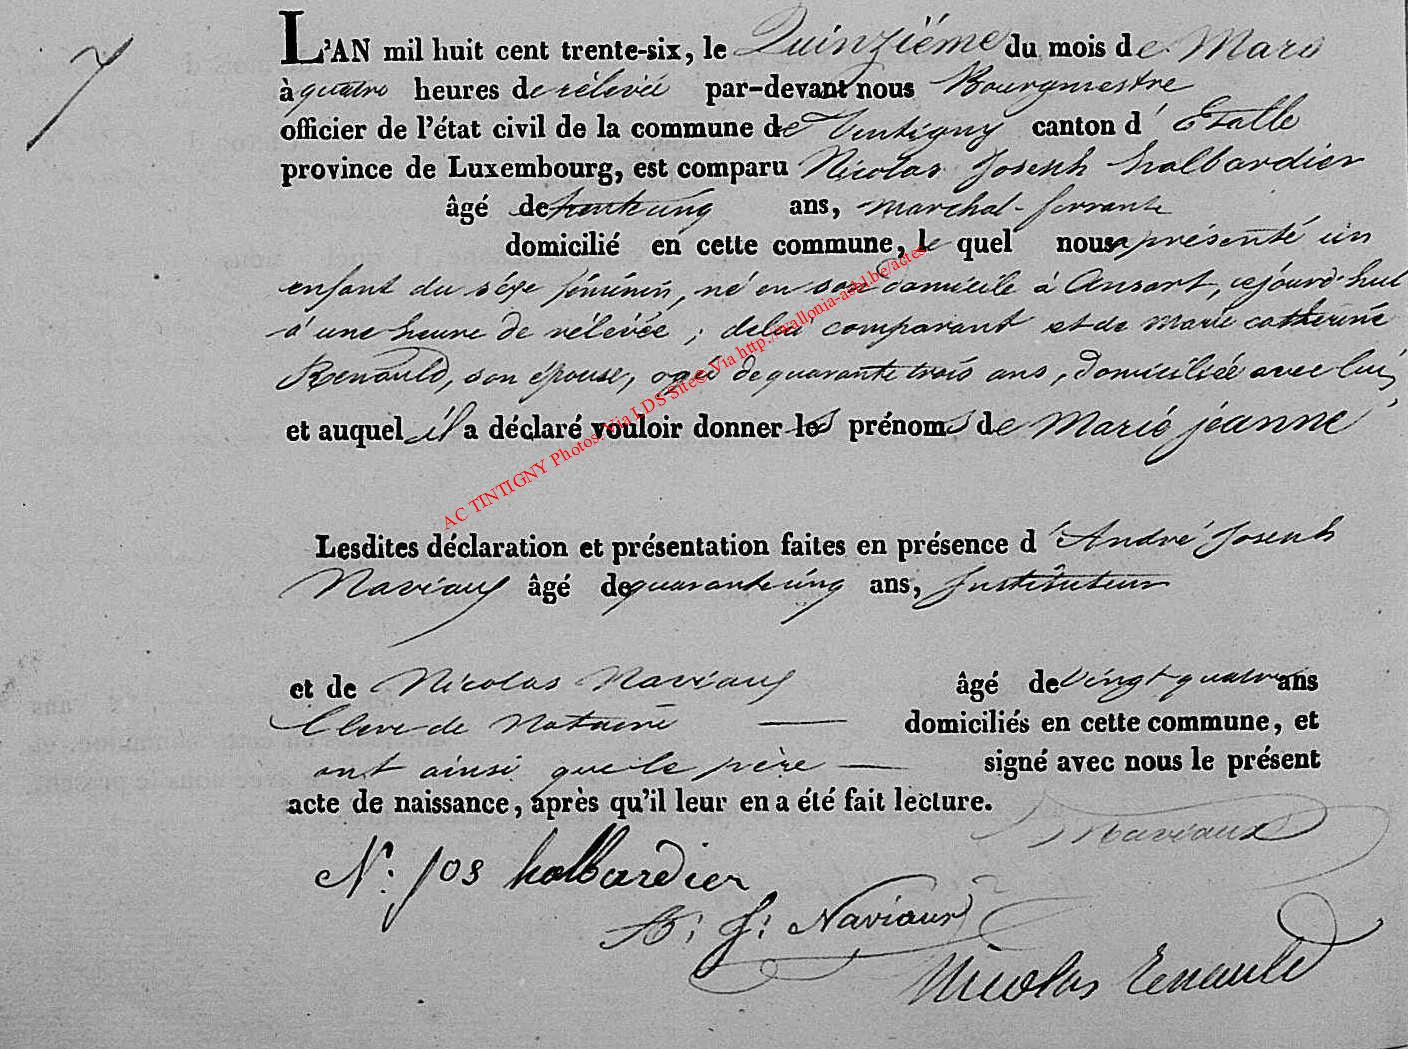 7
L'AN mil huit cent trente-six, le Quinzième du mois de Mars
à quatre heures de rélévée par-devant nous Bourgmestre
officier de l'état civil de la commune de Tintigny canton d'Etalle
province de Luxembourg, est comparu Nicolas Joseph halbardier
âgé de trente ung ans, marchal-ferrante
domicilié en cette commune, le quel nous a présenté un
enfant du séxe féminin, né en son domicile à Ansart, cejourd'hui
à une heure de rélévée ; delui comparant et de Marie catherine
Renauld, son épouse, agée de quarante trois ans, domiciliée avec lui,
et auquel il a déclaré vouloir donner les prénoms de Marie jeanne
Lesdites déclaration et présentation faites en présence d'André Joseph
Naviaux âgé de quarante ung ans, Instituteur
et de Nicolas Naviaux âgé de vingt quatre ans
Clerc de Notaire — domiciliés en cette commune, et
ont ainsi que le père — signé avec nous le présent
acte de naissance, après qu'il leur en a été fait lecture.
Naviaux
N: Jos halbardier
A: J: Naviaux
Nicolas Renauld
AC TINTIGNY Photos Via LDS Site© Via http://wallonia-asbl.be/actes